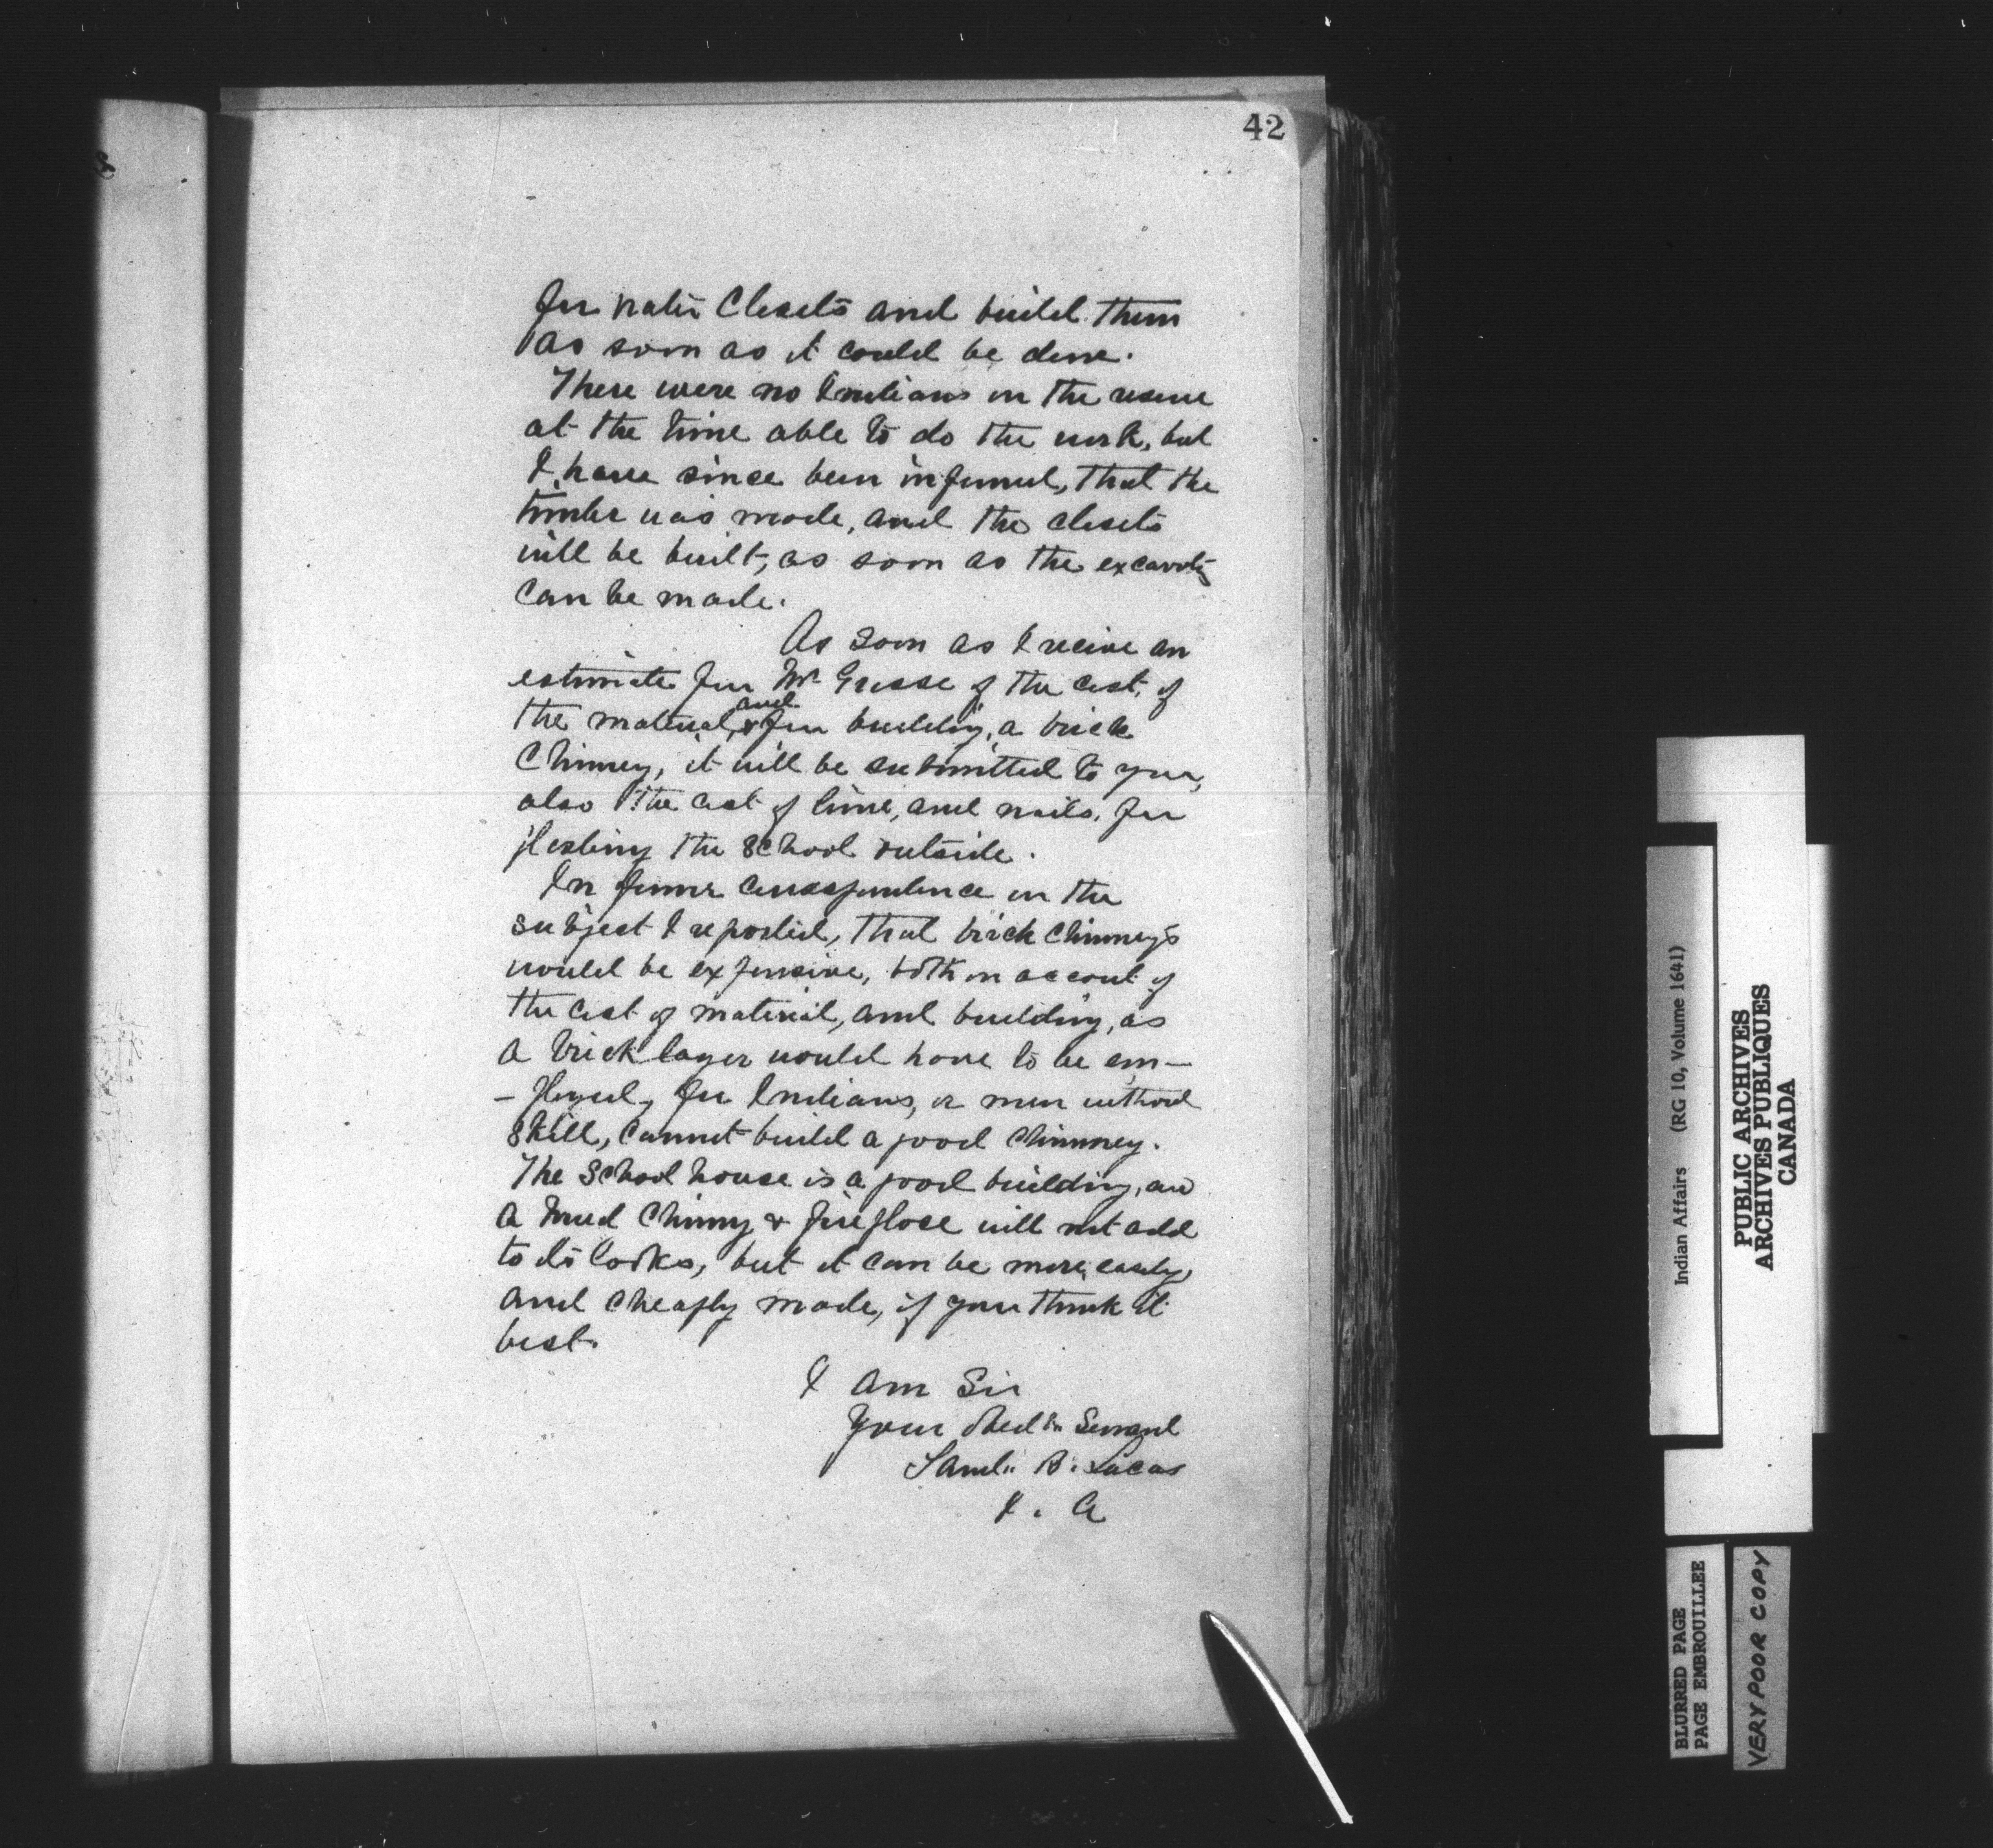 42
for water Closets and build them
as soon as it could be done.
There were no Indians on the reserve
at the time able to do the work, but
I have since been informed, that the
timber was made, and the closets
will be built, as soon as the
can be made.
As soon as I receive an
estimate from Mr. of the cost, of
the material, and for building, a brick
Chimney, it will be submitted to you,
also the cost of lime, and nails, for
the School outside.
In former correspondence on the
subject I reported, that brick Chimneys
would be expensive, both on account of
the cost of material, and building, as
a brick layer would have to be em—
—ployed, for Indians, or men without
skill, cannot build a good Chimney.
The School house is a good building, and
a mud Chimny & fireplace will not add
to its looks, but it can be more, easily,
and cheaply made, if you think it
best.
I am Sir
Your Obedt Servant
Saml. B. Lucas
I. A
Indian Affairs (RG 10, Volume 1641)
PUBLIC ARCHIVES
ARCHIVES PUBLIQUES
CANADA
BLURRED PAGE
PAGE EMBROUILLEE
VERY POOR COPY